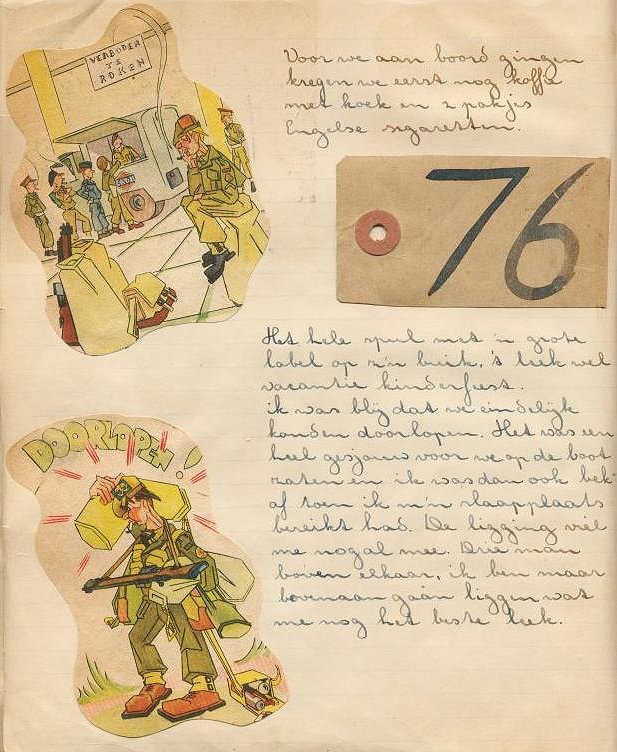 VERBODEN
TE
ROKEN
Voor we aan boord gingen
kregen we eerst nog koffie
met koek en 2 pakjes
Engelse sigaretten.
76
Het hele spul met 'n grote
label op z'n buik, 't leek wel
vacantie kinderfeest.
ik was blij dat we eindelijk
konden doorlopen. Het was een
heel gesjouw voor we op de boot
zaten en ik was dan ook bek
af toen ik m'n slaapplaats
bereikt had. De ligging viel
me nogal mee. Drie man
boven elkaar, ik ben maar
bovenaan gaan liggen wat
me nog het beste leek.
DOORLOPEN!